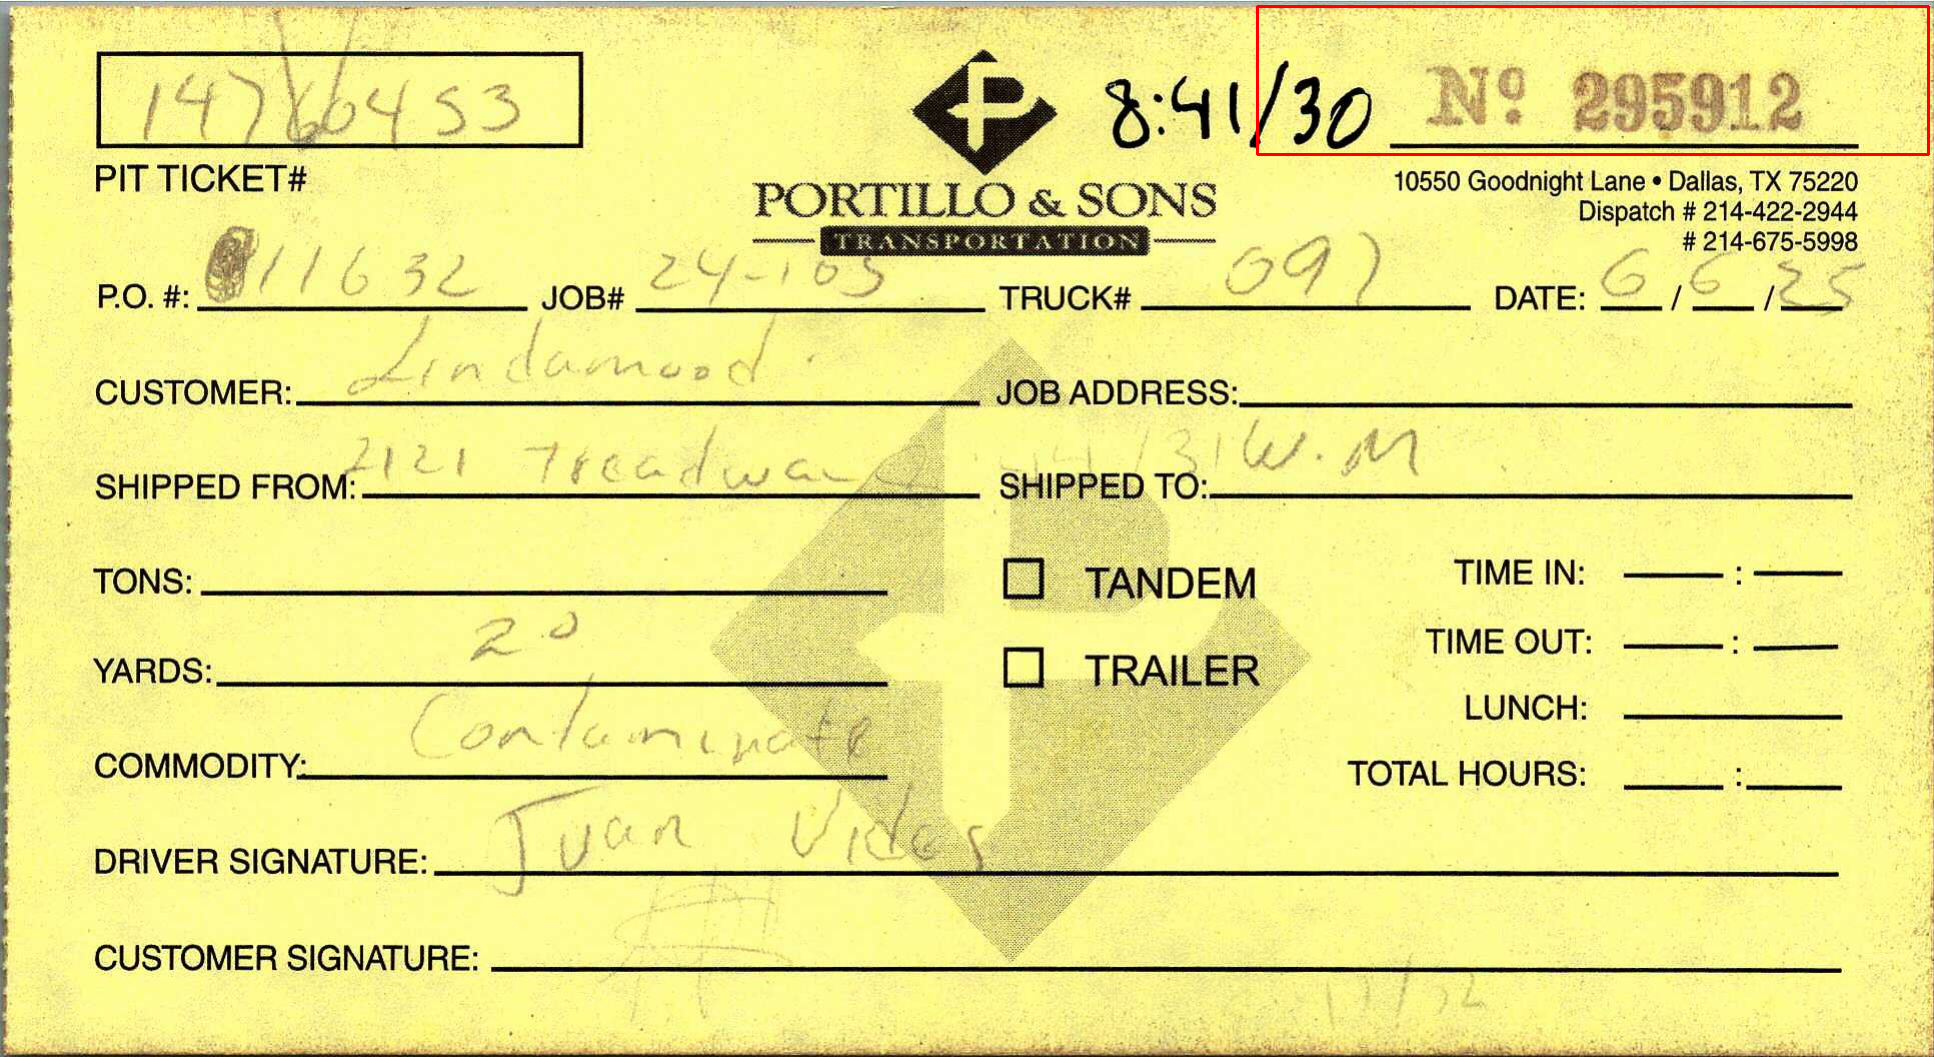 14760453
PIT TICKET#
8:41/30
Nº 295912
PORTILLO & SONS
TRANSPORTATION
10550 Goodnight Lane • Dallas, TX 75220
Dispatch # 214-422-2944
# 214-675-5998
P.O. #: 11632 JOB# 24-105 TRUCK# 097 DATE: 6/6/25
CUSTOMER: Lindamood JOB ADDRESS:
SHIPPED FROM: 2121 Treadway SHIPPED TO: W.M
TONS:
TANDEM
TIME IN: :
YARDS: 20
TRAILER
TIME OUT: :
LUNCH:
COMMODITY: Contaminate
TOTAL HOURS: :
DRIVER SIGNATURE: Juan Vides
CUSTOMER SIGNATURE: